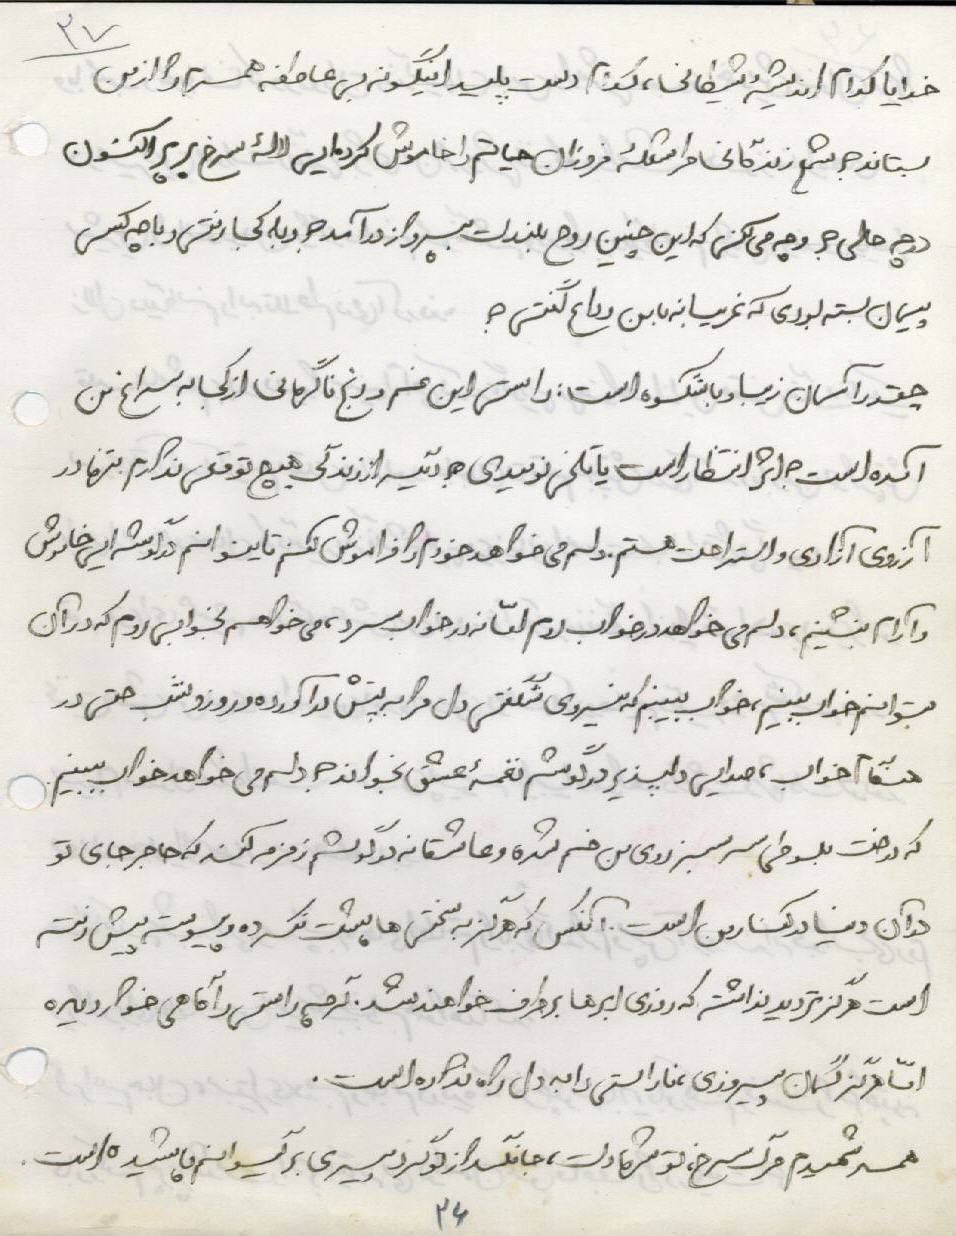 ۲۷
خدایا کدام اندیشهٔ شیطانی، کدام دست پلید اینگونه بی عاطفه همسرم را از من
بستاند؟ شمع زندگانی مرا شعلهٔ فروزان حیاتم را خاموش کرد؟ ای لالهٔ سرخ پرپر اکنون
در چه حالی؟ و چه می کنی که این چنین روح بلندت بپرواز درآمد؟ و به کجا رفتی و با چه کسی
پیمان بسته بودی که غریبانه با من وداع گفتی؟
چقدر آسمان زیبا و باشکوه است: راستی این غم و رنج ناگهانی از کجا به سراغ من
آمده است؟ اثر انتظار است یا تلخی نومیدی؟ دیگر از زندگی هیچ توقعی ندارم تنها در
آرزوی آزادی و استراحت هستم. دلم می خواهد خودم را فراموش کنم تا بتوانم در گوشه ای خاموش
و آرام بنشینم، دلم می خواهد در خواب روم امّا نه در خواب سرد، می خواهم بخوابی روم که در آن
بتوانم خواب ببینم، خواب ببینم که نیروی شگفتی دل مرا به تپش درآورده و روز و شب حتی در
هنگام خواب، صدایی دلپذیر در گوشم نغمهٔ عشق بخواند؟ دلم می خواهد خواب ببینم
که درخت بلوطی سرسبز روی من خم شده و عاشقانه در گوشم زمزمه کند که حاجر جای تو
در آن دنیا در کنار من است. آنکس که هرگز به سختی ها پشت نکرده و پیوسته پیش رفته
است هرگز تردید نداشته که روزی ابرها برطرف خواهند شد. گرچه راستی را گاهی خوار دیده
امّا هرگز گمان پیروزی، ناراستی را به دل راه نداده است.
همسر شهیدم مرگ سرخ، تو شهادت، جانگداز تو گرد پیری بر گیسوانم پاشیده است.
۲۴